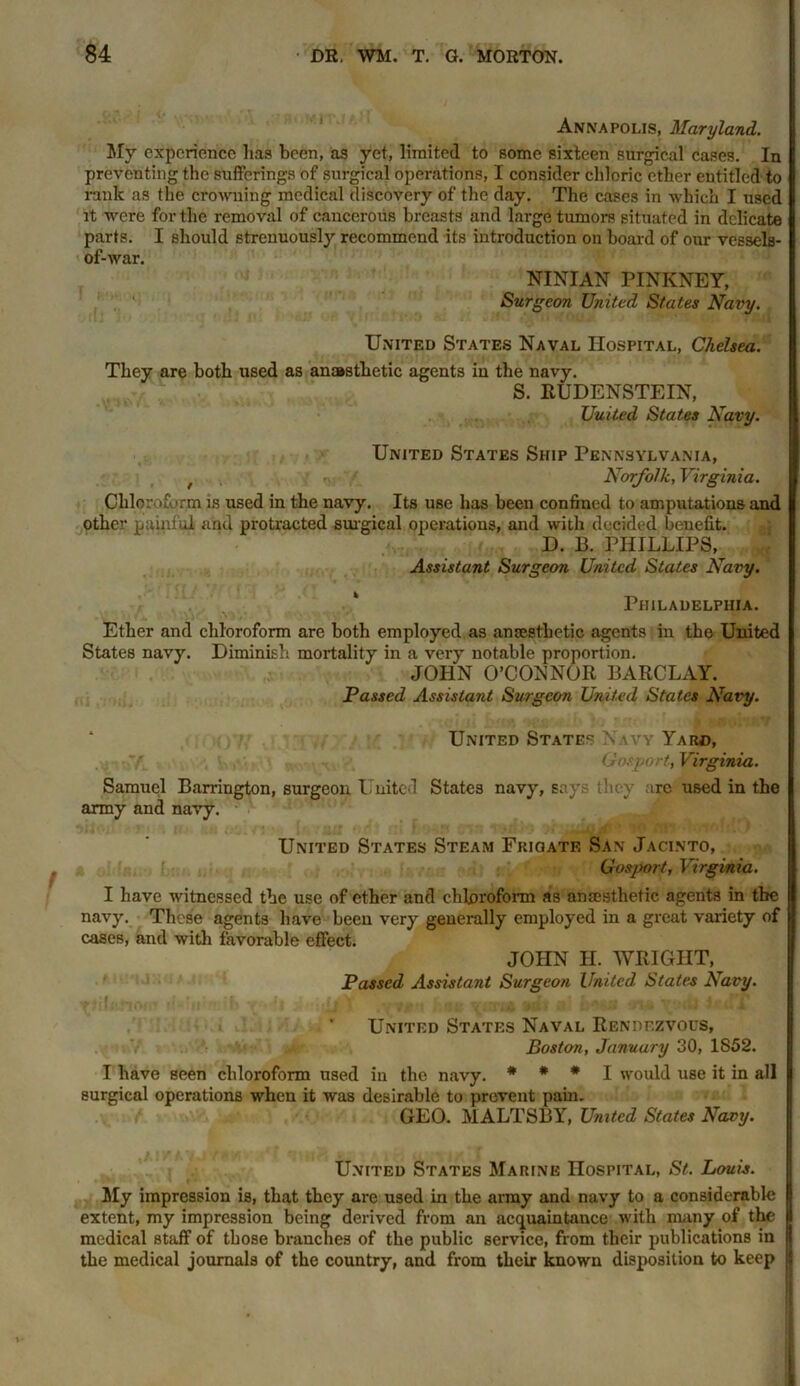 84 DR. WM. T. G. MORTON.
ANNAPOLIS, Maryland.
My experience has been, as yet, limited to some sixteen surgical cases. In
preventing the sufferings of surgical operations, I consider chloric ether entitled to
rank as the crowning medical discovery of the day. The cases in which I used
it were for the removal of cancerous breasts and large tumors situated in delicate
parts. I should strenuously recommend its introduction on board of our vessels-
of-war.
NINIAN PINKNEY,
Surgeon United States Navy.
UNITED STATES NAVAL HOSPITAL, Chelsea.
They are both used as anæsthetic agents in the navy.
S. RUDENSTEIN,
Uuited States Navy.
UNITED STATES SHIP PENNSYLVANIA,
Norfolk, Virginia.
Chloroform is used in the navy. Its use has been confined to amputations and
other painful and protracted surgical operations, and with decided benefit.
D. B. PHILLIPS,
Assistant Surgeon United States Navy.
PHILADELPHIA.
Ether and chloroform are both employed as anæsthetic agents in the United
States navy. Diminish mortality in a very notable proportion.
JOHN O'CONNOR BARCLAY.
Passed Assistant Surgeon United States Navy.
UNITED STATES NAVY YARD,
Gosport, Virginia.
Samuel Barrington, surgeon United States navy, says they are used in the
army and navy.
UNITED STATES STEAM FRIGATE SAN JACINTO,
Gosport, Virginia.
I have witnessed the use of ether and chloroform as anæsthetic agents in the
navy. These agents have been very generally employed in a great variety of
cases, and with favorable effect.
JOHN H. WRIGHT,
Passed Assistant Surgeon United States Navy.
UNITED STATES NAVAL RENDEZVOUS,
Boston, January 30, 1852.
I have seen chloroform used in the navy. * * * I would use it in all
surgical operations when it was desirable to prevent pain.
GEO. MALTSBY, United States Navy.
UNITED STATES MARINE HOSPITAL, St. Louis.
My impression is, that they are used in the army and navy to a considerable
extent, my impression being derived from an acquaintance with many of the
medical staff of those branches of the public service, from their publications in
the medical journals of the country, and from their known disposition to keep